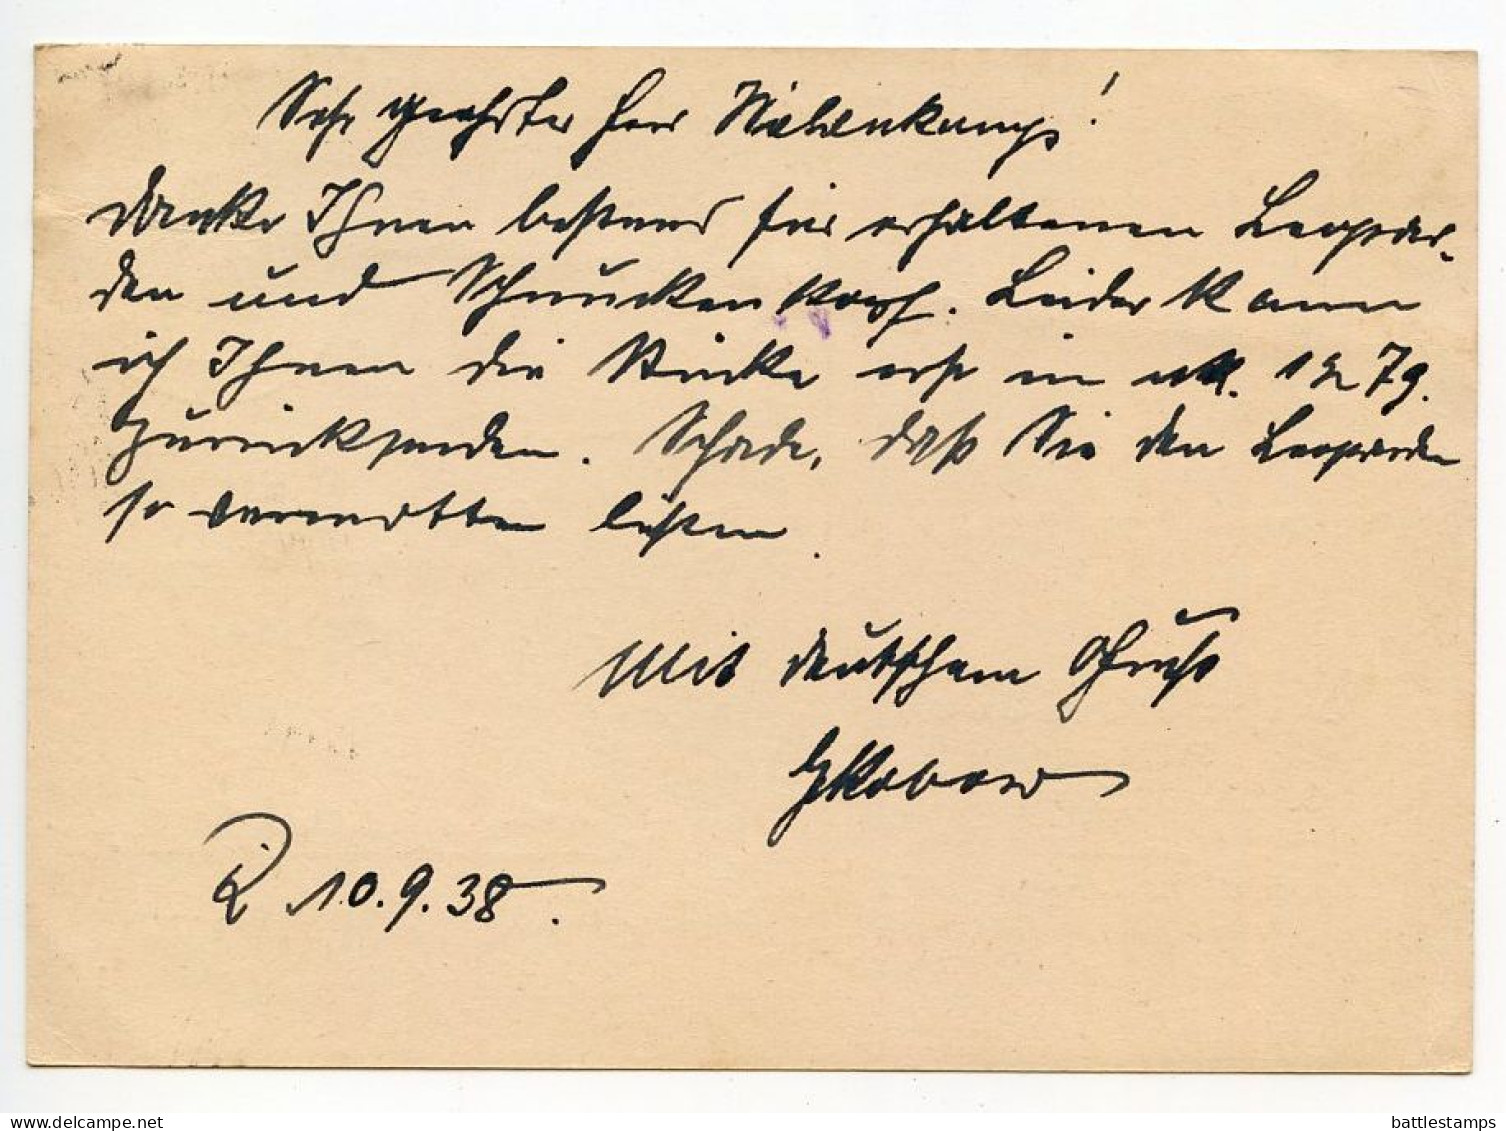 Sehr geehrter Herr Niebenkamp!
Danke Ihnen bestens für erhaltenen Leopar-
den und Schnuckenkopf. Leider kann
ich Ihnen die Stücke erst in
zurücksenden. Schade, daß Sie den Leoparden
so vermotten ließen.
Mit deutschem Gruß
10.9.38.
battlestamps